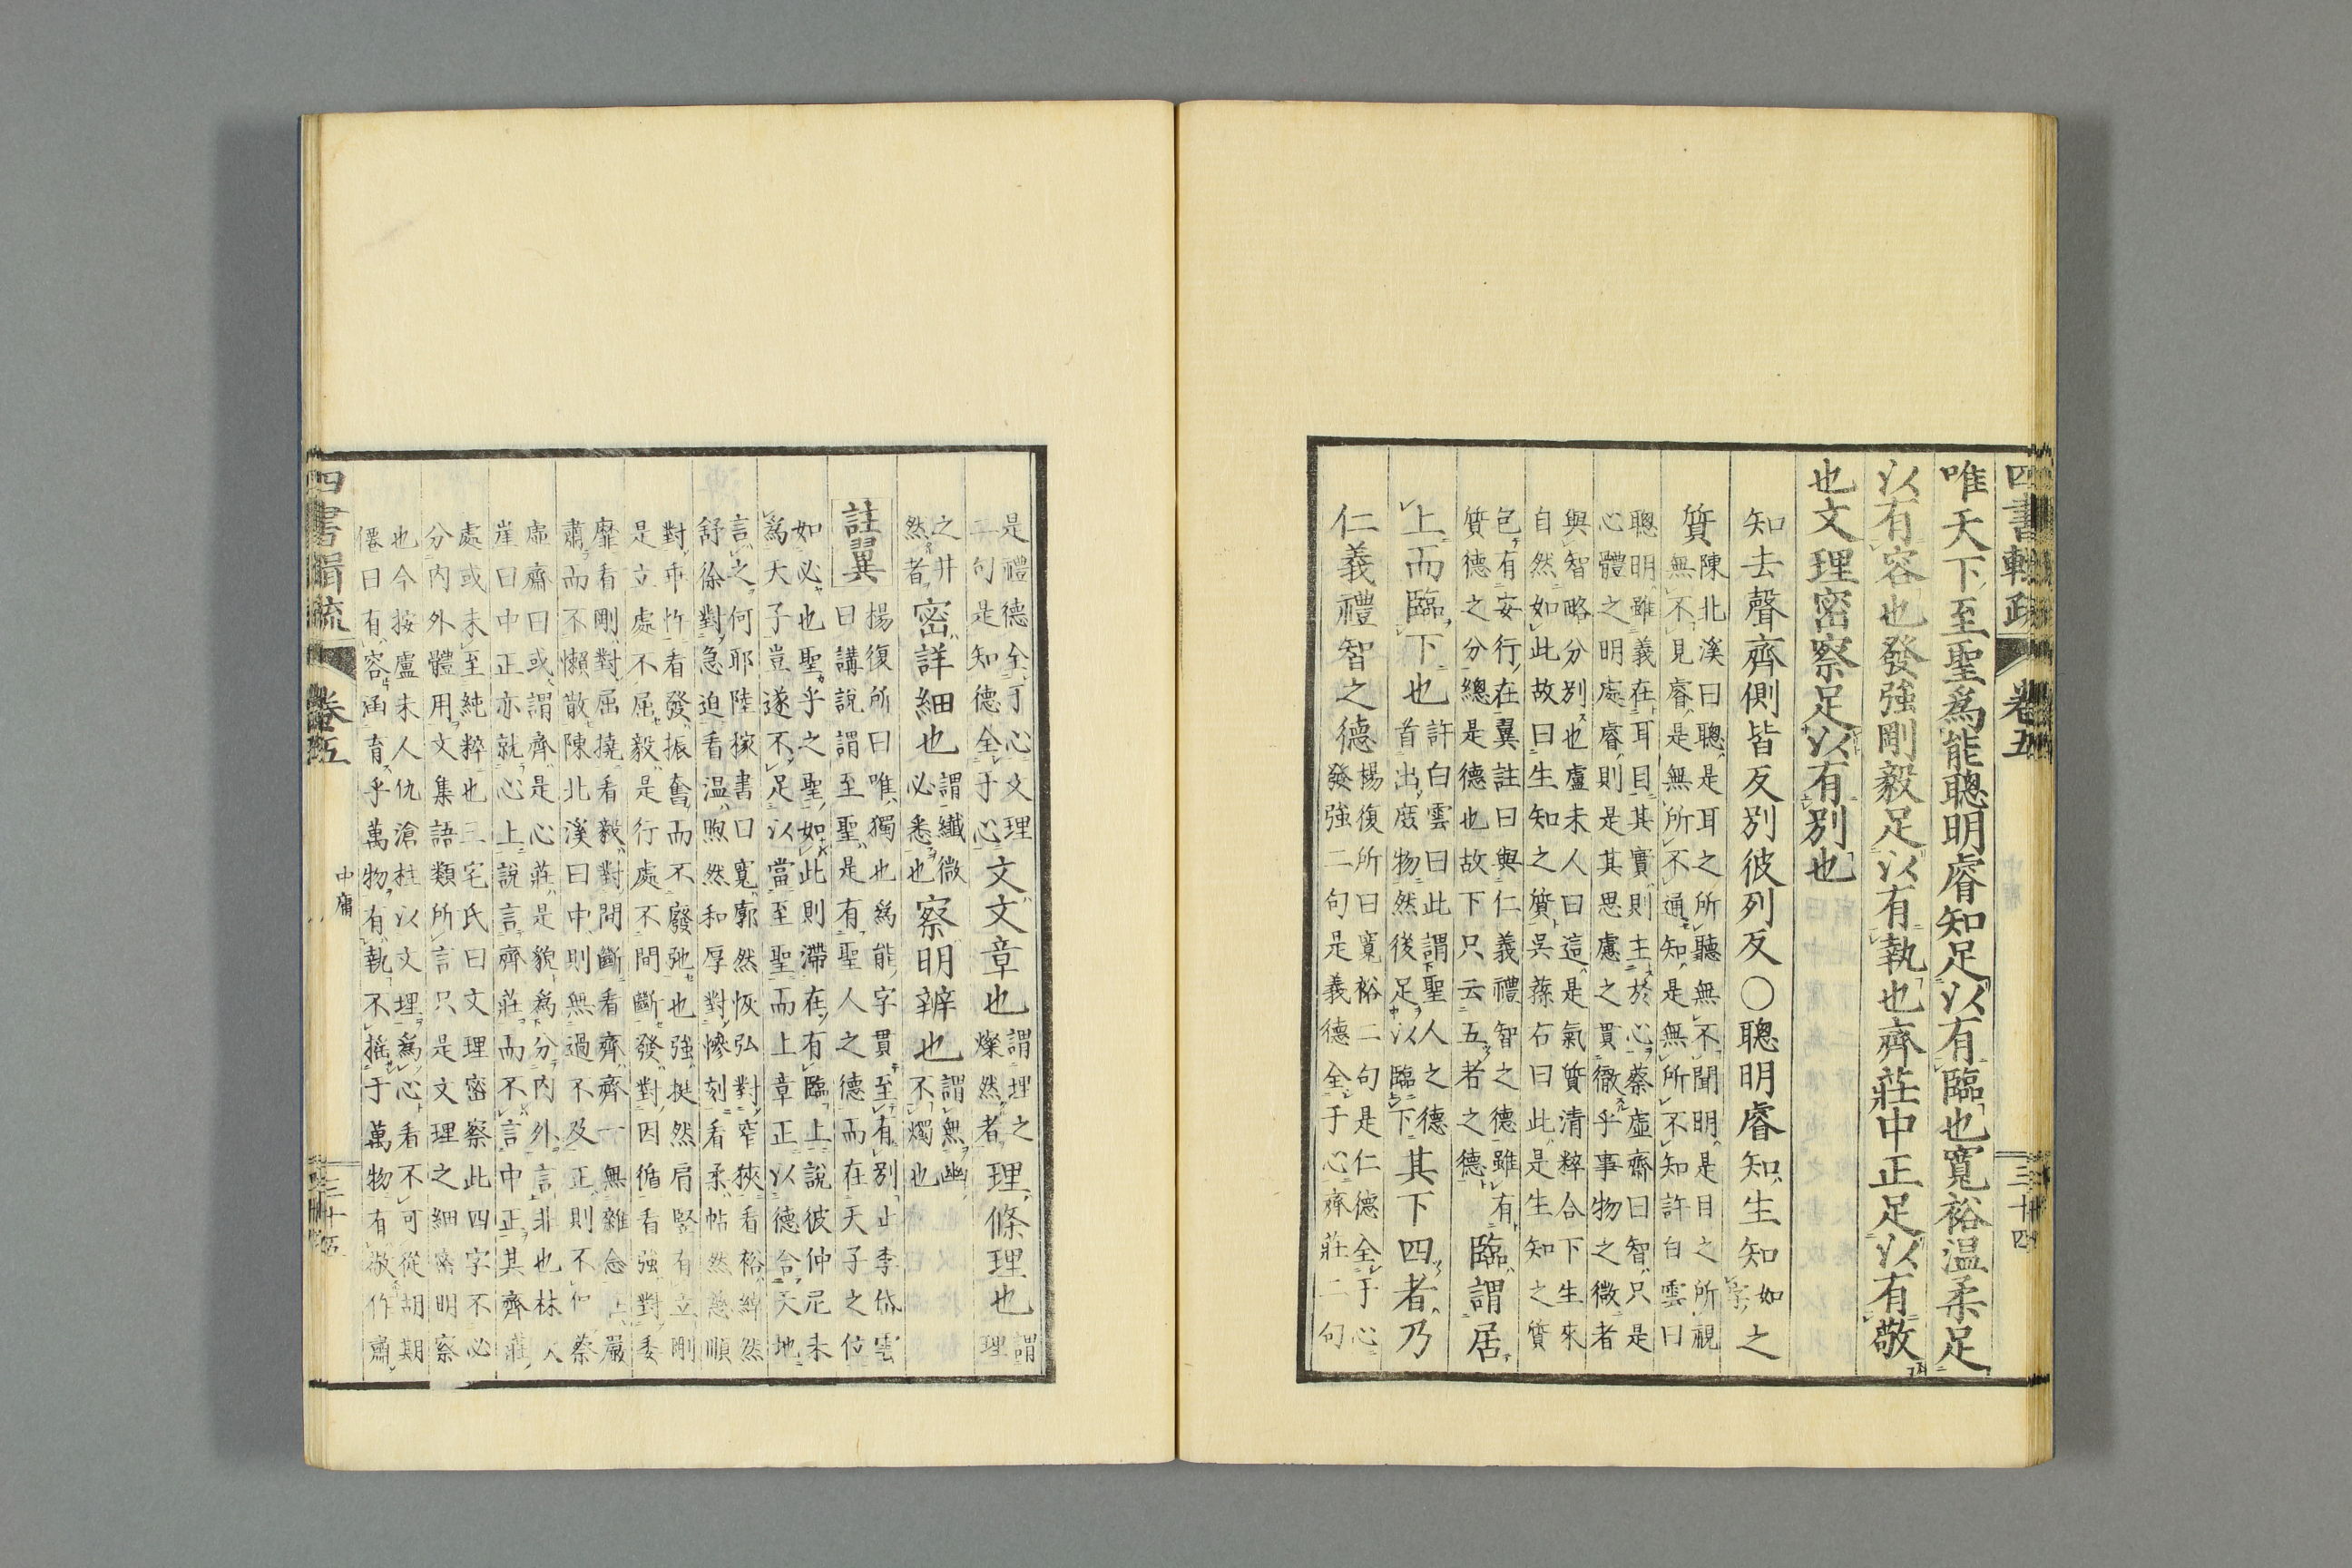 四書輯疏 卷五 三十四
唯天下至聖爲能聰明睿知足以有臨也寬裕温柔足
以有容也發強剛毅足以有執也齊莊中正足以有敬
也文理密察足以有別也
知去聲齊側皆反別彼列反○聰明睿知生知如字之
質陳北溪曰聰是耳之所聽無不聞明是目之所視
無不見睿是無所不通知是無所不知許白雲曰
聰明雖義在耳目其實則主於心蔡虛齋曰智只是
心體之明處睿則是其思慮之貫徹乎事物之微者
與智略分別也盧未人曰這是氣質清粹合下生來
自然如此故曰生知之質吳蓀石曰此是生知之質
包有安行在翼註曰與仁義禮智之德雖有
質德之分總是德也故下只云五者之德臨謂居
上而臨下也許白雲曰此謂聖人之德
首出庶物然後足以臨下其下四者乃
仁義禮智之德楊復所曰寬裕二句是仁德全于心
發強二句是義德全于心齊莊二句
是禮德全于心文理
二句是知德全于心文文章也謂理之
燦然者理條理也謂理
之井
然者密詳細也謂纖微
必悉也察明辨也謂無幽
不燭也
註翼楊復所曰唯獨也爲能字貫至有別止李岱雲
曰講說謂至聖是有聖人之德而在天子之位
如必也聖乎之聖如此則滯在有臨上說彼仲尼未
爲天子豈遂不足以當至聖而上章正以德合天地
言之何耶陸稼書曰寬廓然恢弘對窄狹看裕綽然
舒徐對急迫看温煦然和厚對慘刻看柔帖然慈順
對乖忤看發振奮而不廢弛也強挺然肩堅有立剛
是立處不屈毅是行處不間斷發對因循看強對委
靡看剛對屈撓看毅對間斷看齊齊一無雜念上嚴
肅而不懶散陳北溪曰中則無過不及正則不偏蔡
虛齋曰或謂齊是心莊是貌爲分內外言非也林次
崖曰中正亦就心上說言齊莊而不言中正其齊莊
處或未至純粹也三宅氏曰文理密察此四字不必
分內外體用文集語類所言只是文理之細密明察
也今按盧未人仇滄柱以文理爲心看不可從胡期
僊曰有容涵育乎萬物有執不搖于萬物有敬作肅
四書輯疏 卷五 中庸 三十五